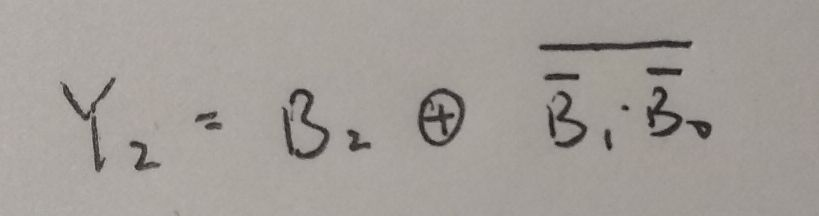 Y₂ = B₂ ⊕ \overline{\overline{B}₁·\overline{B}₀}